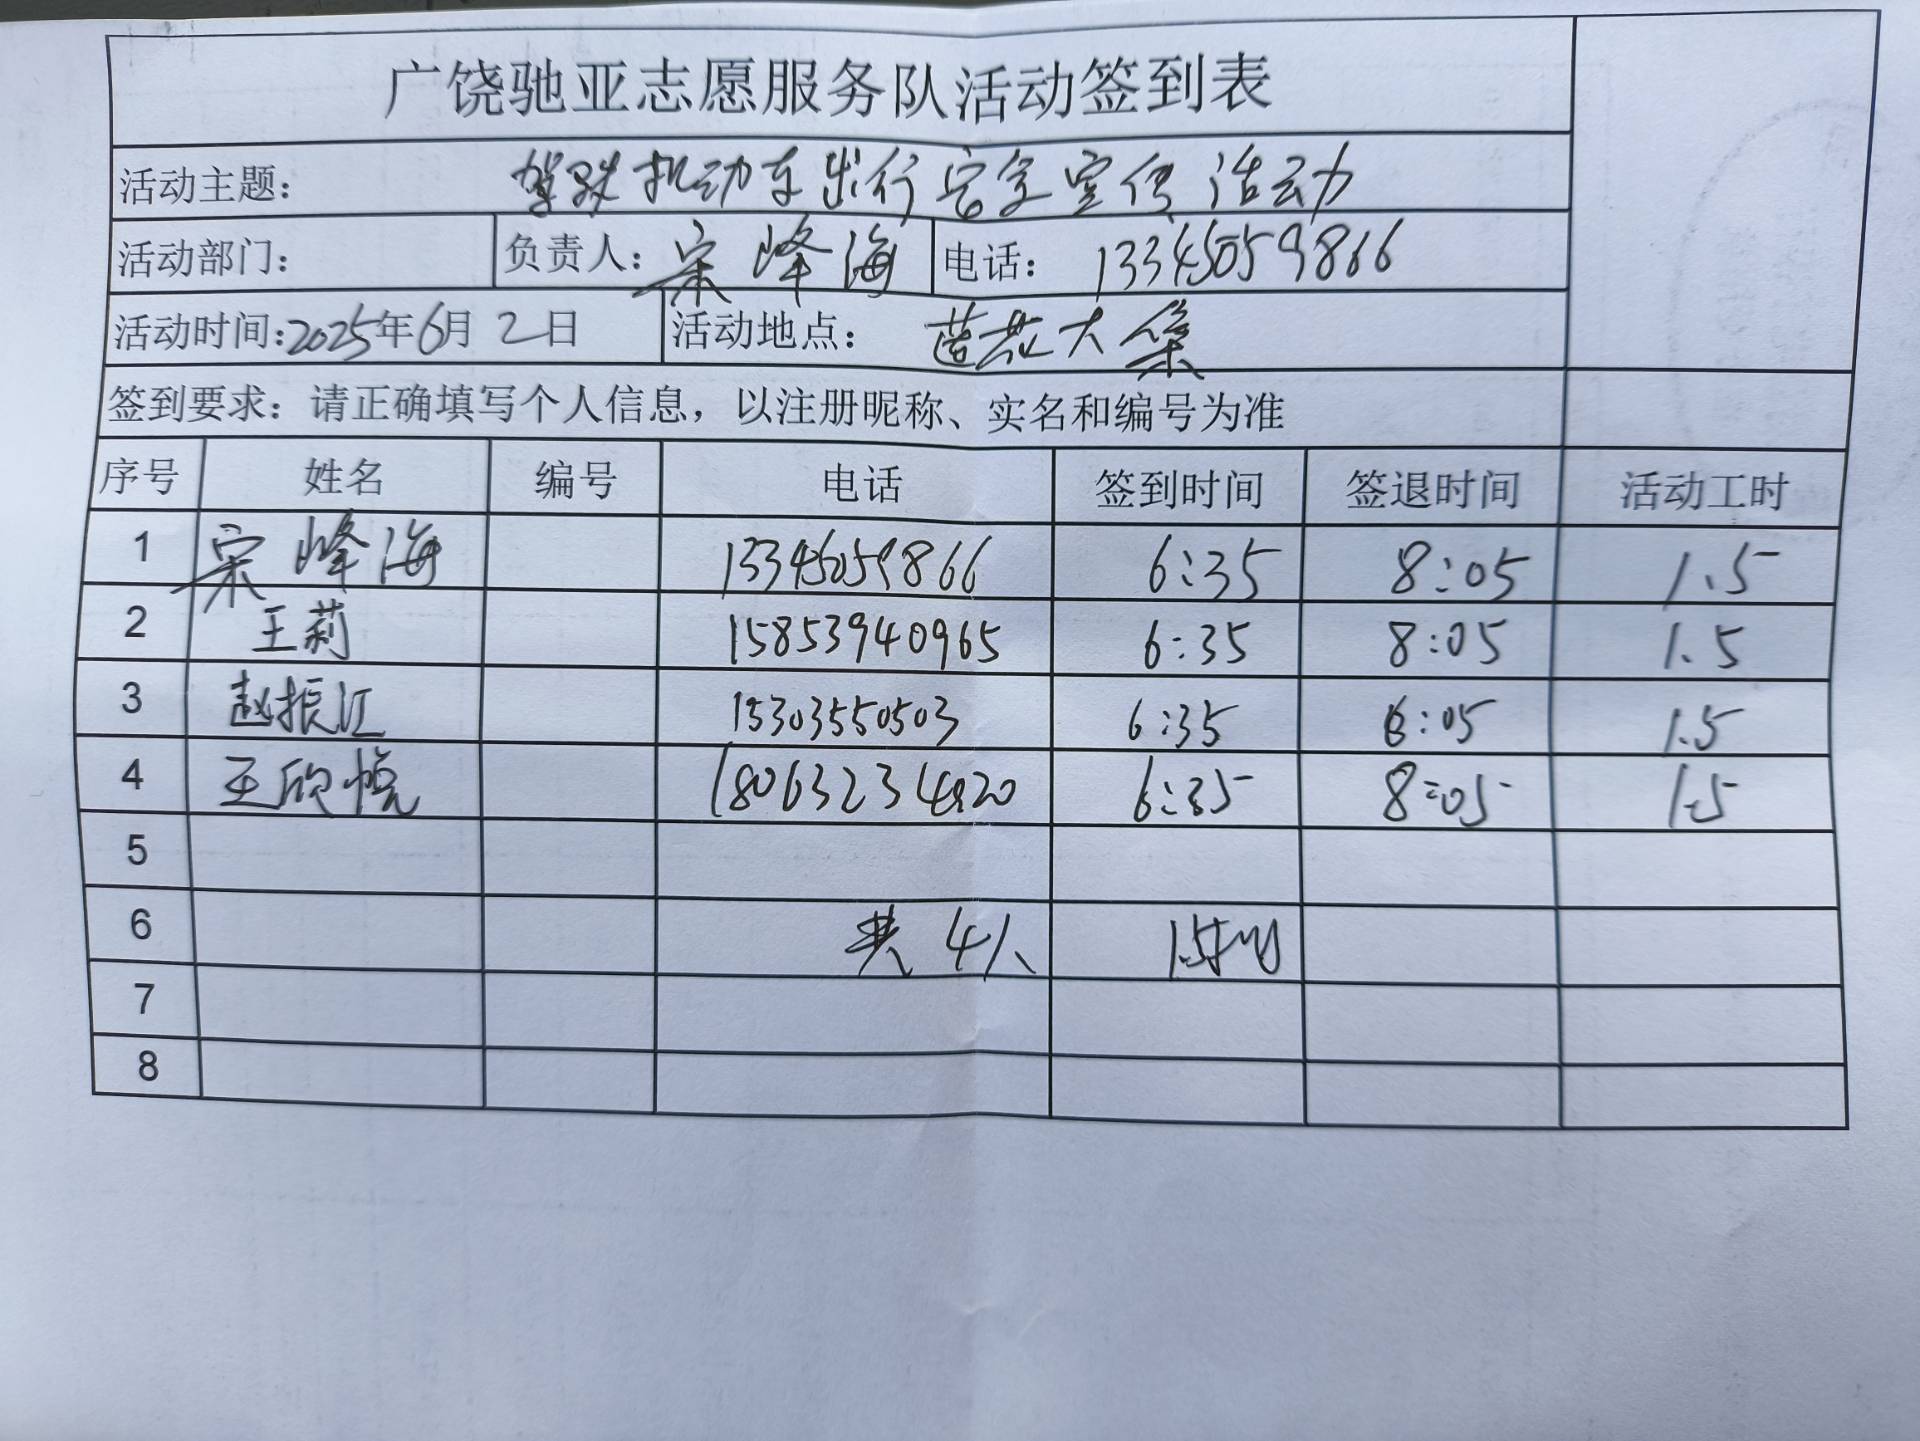 广饶驰亚志愿服务队活动签到表
活动主题: 驾驶机动车出行安全宣传活动
活动部门: 负责人: 宋峰海 电话: 13345059866
活动时间:2025年6月2日 活动地点: 大集
签到要求: 请正确填写个人信息, 以注册昵称、实名和编号为准
序号 姓名 编号 电话 签到时间 签退时间 活动工时
1 宋峰海 13345059866 6:35 8:05 1.5
2 王莉 15853940965 6:35 8:05 1.5
3 赵振江 15303550503 6:35 6:05 1.5
4 王欣悦 6:35 8:05 1.5
5
6 共4人
7
8